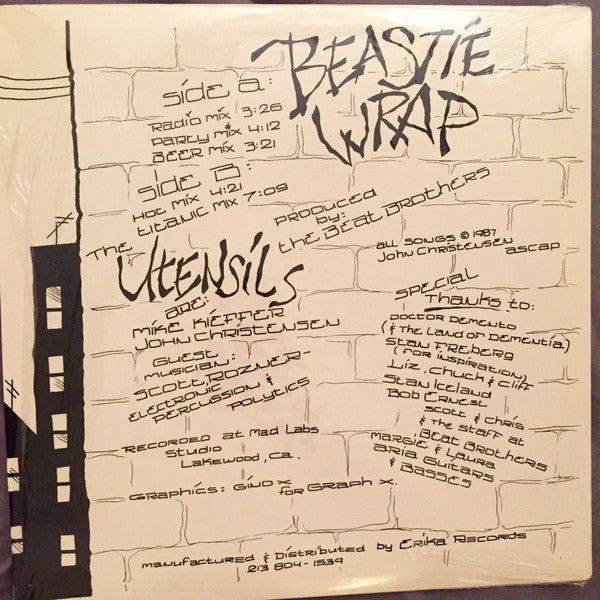 BEASTIE
WRAP
side a:
Radio mix 3:26
Party mix 4:12
Beer mix 3:21
side B:
Hot mix 4:21
titanic mix 7:09
Produced
by:
the Beat Brothers
The
UtENSiLs
are:
Mike Kieffer
John Christensen
Guest
musician:
Scott Rozner-
electronic
percussion &
polytics
all songs © 1987
John Christensen
ascap
Special
Thanks to:
Doctor Demento
(& The Land of Dementia)
Stan Freberg
(for inspiration)
Liz, Chuck & Cliff
Stan Iceland
Bob Ernest
scott & chris
& The staff at
Beat Brothers
Margie & Laura
aria Guitars
& Basses
Recorded at Mad Labs
Studio
Lakewood, Ca.
Graphics: Gino x
for Graph X.
manufactured & Distributed by Erika Records
213 804-1539